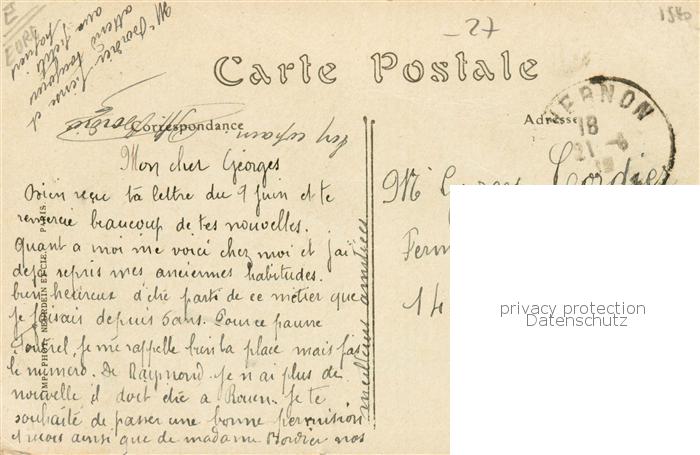 27
1580
Carte Postale
Correspondance
Adresse
VERNON
18
21 -6
19
Mon cher Georges
Bien reçu ta lettre du 9 juin et te
remercie beaucoup de tes nouvelles.
Quant a moi me voici chez moi et j'ai
deja repris mes anciennes habitudes.
bien heureux d'être parti de ce métier que
je faisais depuis 5 ans. Pour ce pauvre
je me rappelle bien la place mais pas
le numero. De Raymond je n'ai plus de
nouvelle il doit être a Rouen. Je te
souhaite de passer une bonne permission
et reçois ainsi que de madame nos
meilleures amitiées
Mr Cordier
Ferm
14
EURE
IMP. PHOT. NEURDEIN ET CIE. PARIS
privacy protection
Datenschutz